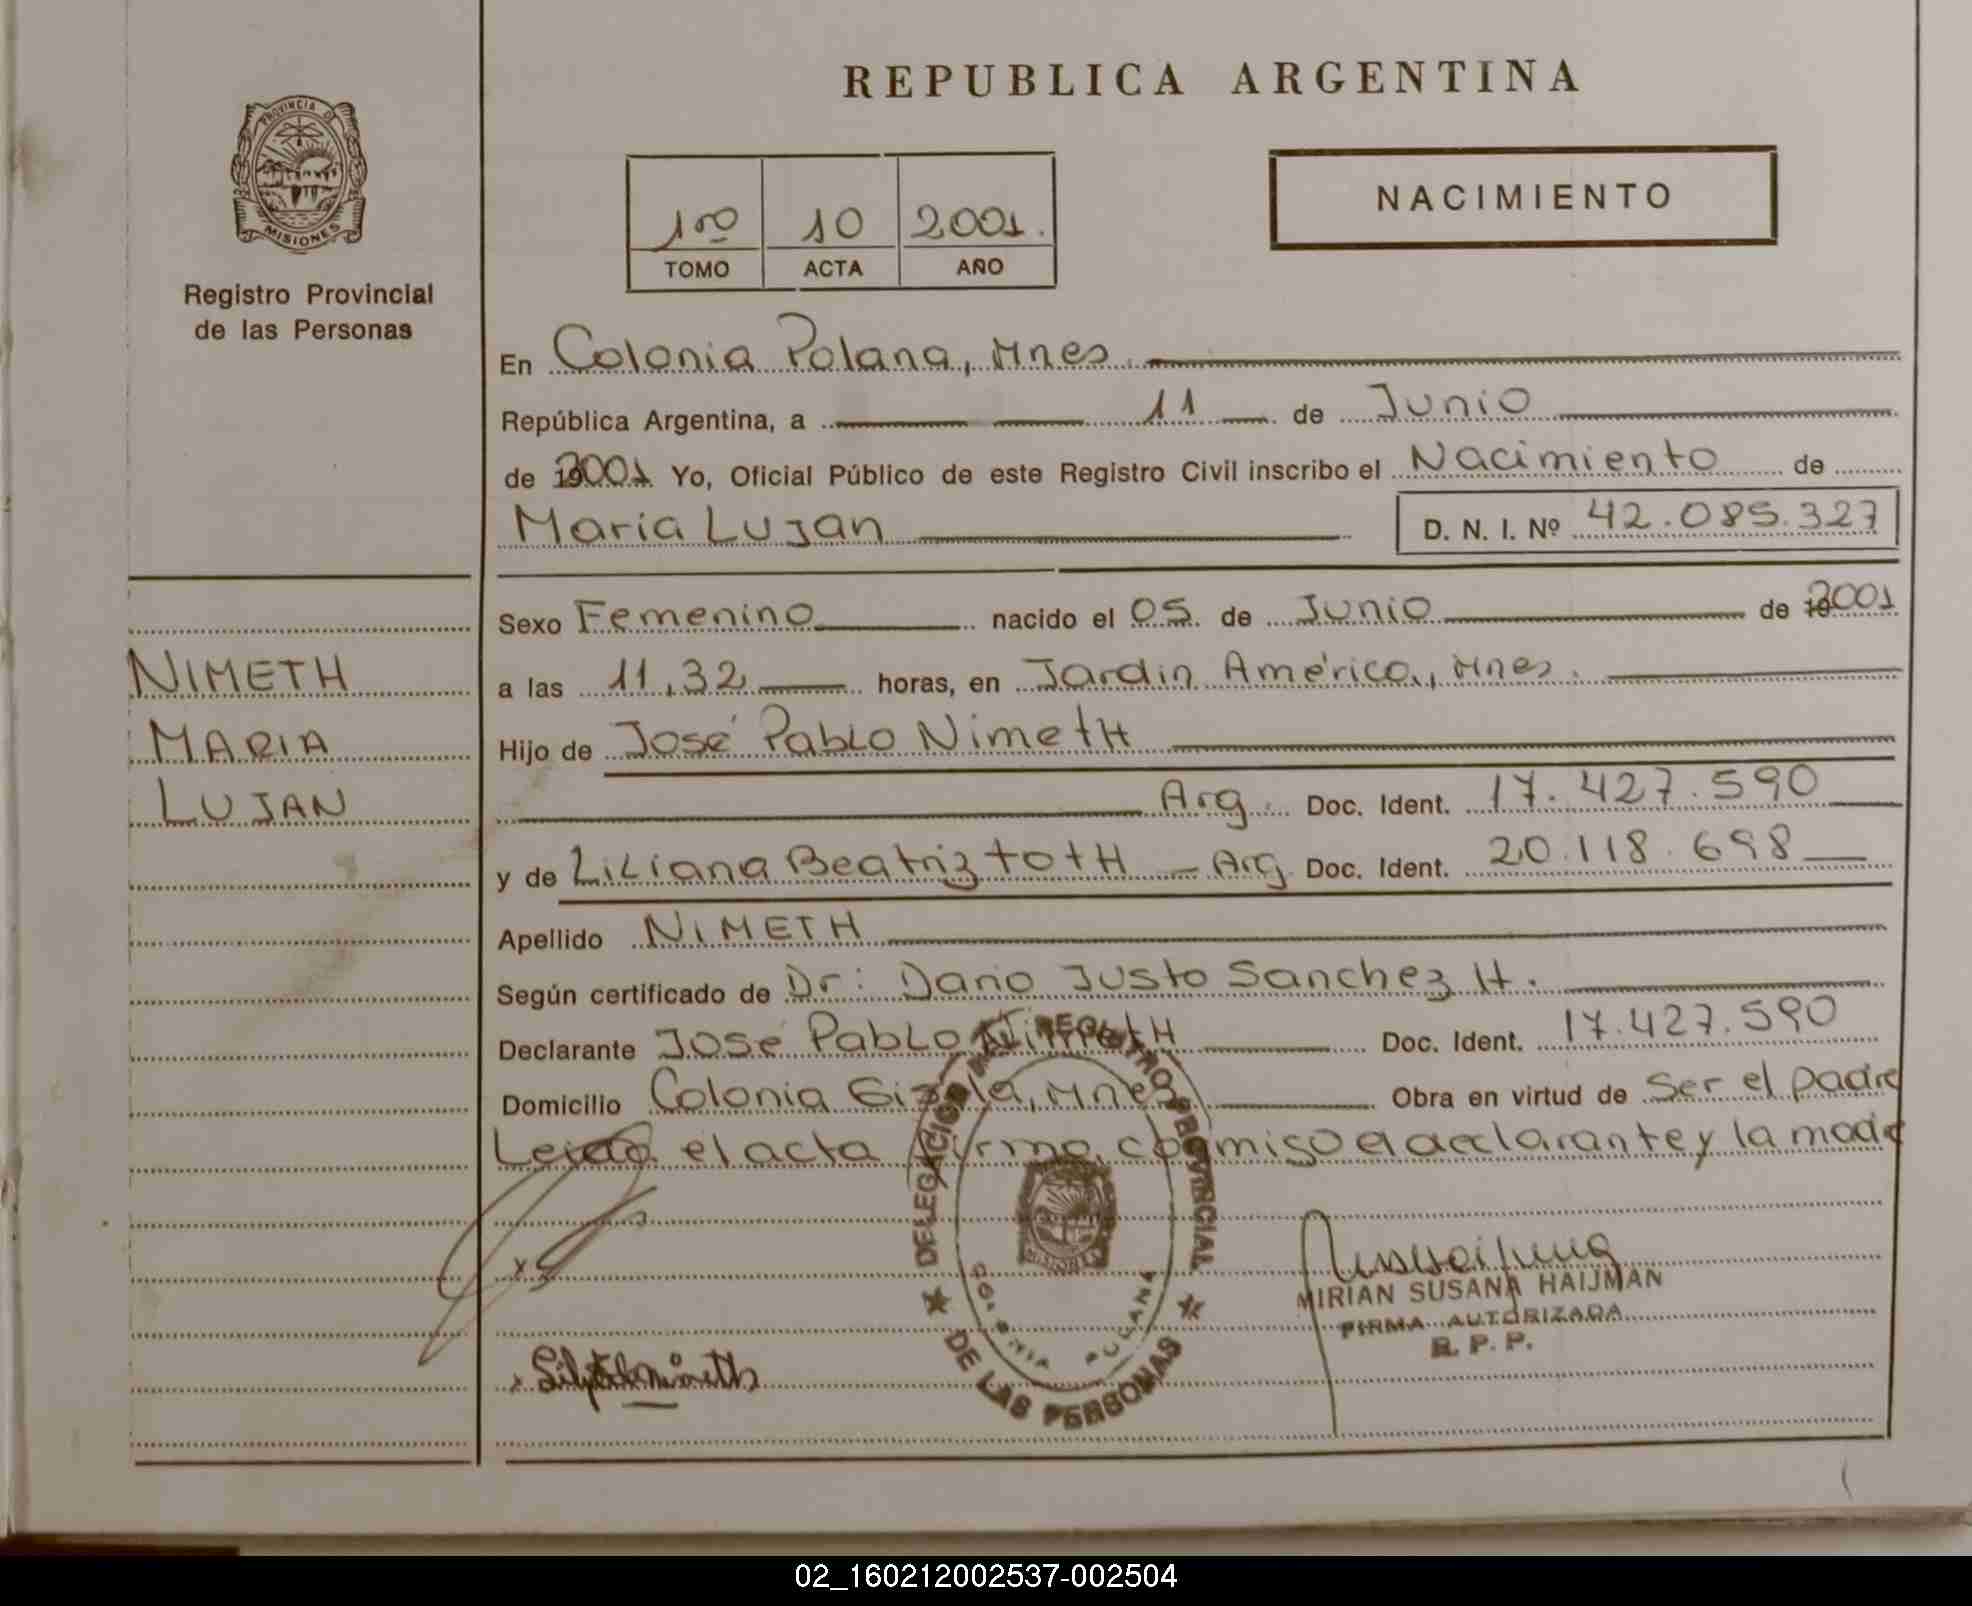 REPUBLICA ARGENTINA
PROVINCIA DE
MISIONES
Registro Provincial
de las Personas
1ro 10 2001.
TOMO ACTA AÑO
NACIMIENTO
En Colonia Polana, Mnes.
República Argentina, a 11 de Junio
de 2001 Yo, Oficial Público de este Registro Civil inscribo el Nacimiento de
Maria Lujan D. N. I. Nº 42.085.327
Sexo Femenino nacido el 05 de Junio de 2001
a las 11,32 horas, en Jardin América, Mnes.
Hijo de José Pablo Nimeth
Arg. Doc. Ident. 17.427.590
y de Liliana Beatriz toth - Arg Doc. Ident. 20.118.698
Apellido NIMETH
Según certificado de Dr: Dario Justo Sanchez H.
Declarante José Pablo Nimeth Doc. Ident. 17.427.590
Domicilio Colonia Gisela, Mnes Obra en virtud de ser el padre
Leida el acta firma conmigo el declarante y la madre
NIMETH
MARIA
LUJAN
DELEGACION DEL REGISTRO PROVINCIAL
DE LAS PERSONAS
MISIONES
COLONIA POLANA
MIRIAN SUSANA HAIJMAN
FIRMA AUTORIZADA
R. P. P.
02_160212002537-002504